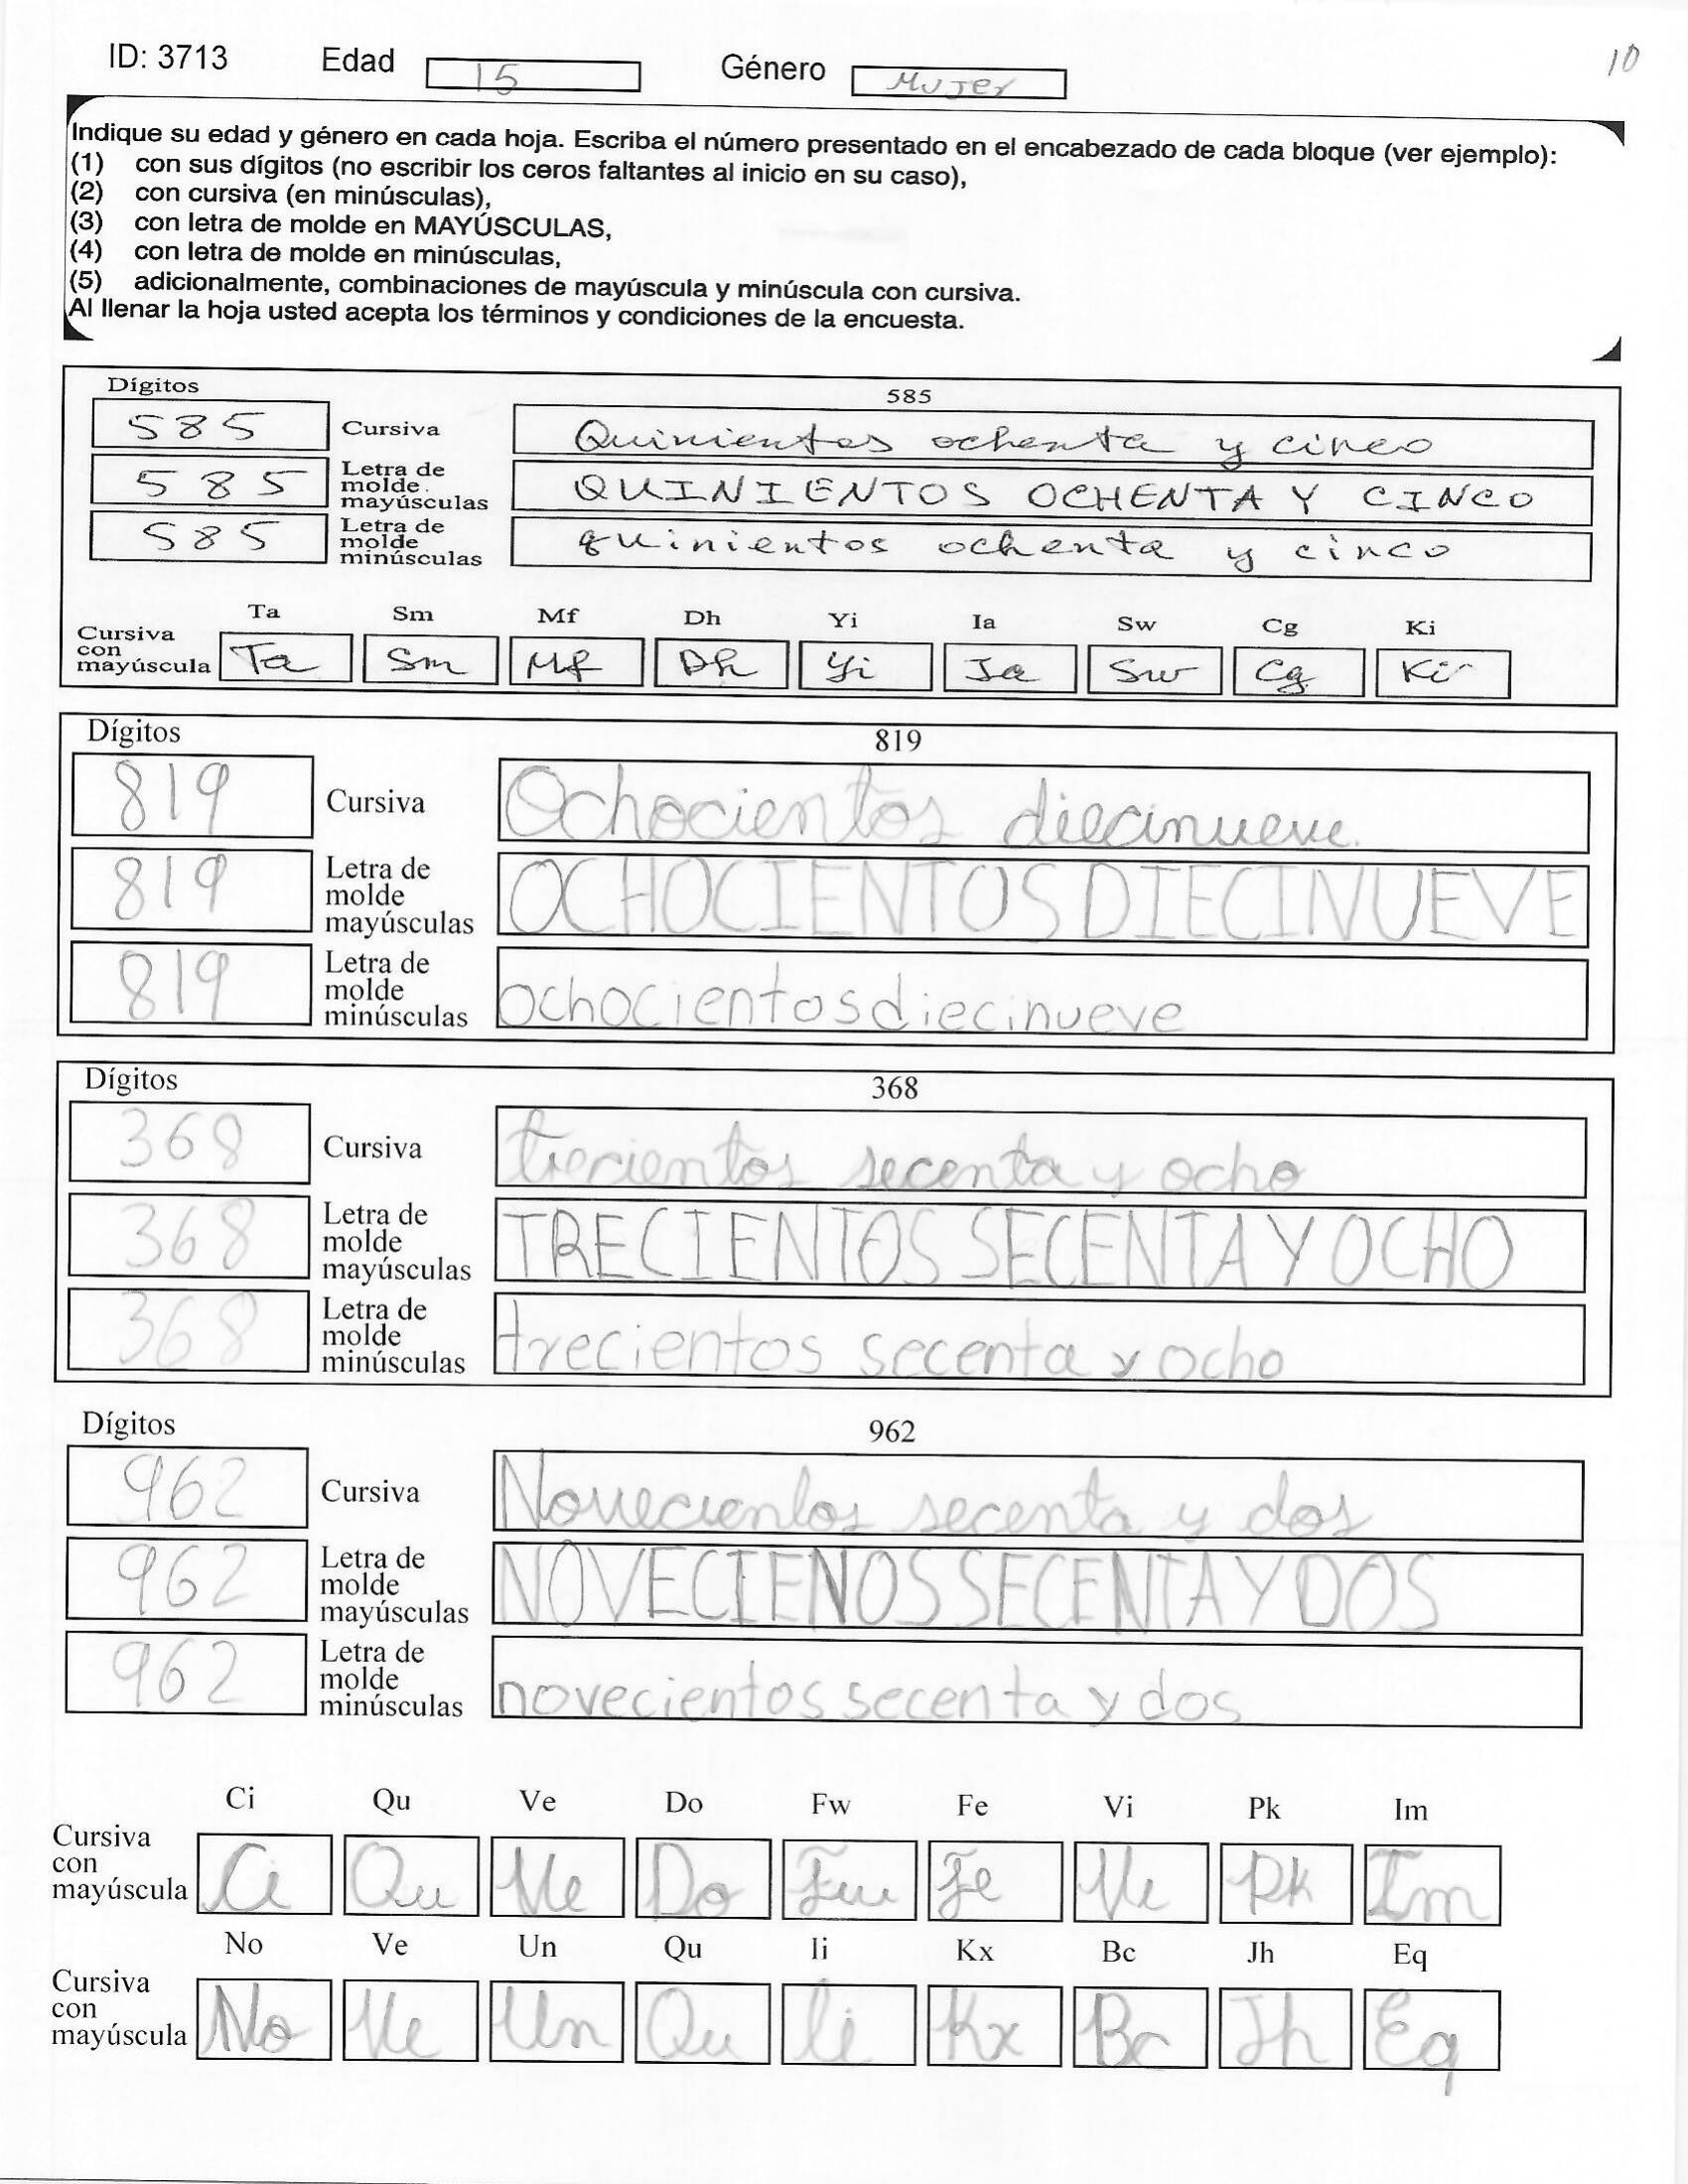 ID: 3713 Edad 15 Género Mujer 10
Indique su edad y género en cada hoja. Escriba el número presentado en el encabezado de cada bloque (ver ejemplo):
(1) con sus dígitos (no escribir los ceros faltantes al inicio en su caso),
(2) con cursiva (en minúsculas),
(3) con letra de molde en MAYÚSCULAS,
(4) con letra de molde en minúsculas,
(5) adicionalmente, combinaciones de mayúscula y minúscula con cursiva.
Al llenar la hoja usted acepta los términos y condiciones de la encuesta.
Dígitos 585
585 Cursiva Quinientos ochenta y cinco
585 Letra de molde mayúsculas QUINIENTOS OCHENTA Y CINCO
585 Letra de molde minúsculas quinientos ochenta y cinco
Ta Sm Mf Dh Yi Ia Sw Cg Ki
Cursiva con mayúscula Ta Sm Mf Dh Yi Ia Sw Cg Ki
Dígitos 819
819 Cursiva Ochocientos diecinueve.
819 Letra de molde mayúsculas OCHOCIENTOS DIECINUEVE
819 Letra de molde minúsculas ochocientos diecinueve
Dígitos 368
368 Cursiva trecientos secenta y ocho
368 Letra de molde mayúsculas TRECIENTOS SECENTA Y OCHO
368 Letra de molde minúsculas trecientos secenta y ocho
Dígitos 962
962 Cursiva Novecientos secenta y dos
962 Letra de molde mayúsculas NOVECIENOS SECENTA Y DOS
962 Letra de molde minúsculas novecientos secenta y dos
Ci Qu Ve Do Fw Fe Vi Pk Im
Cursiva con mayúscula Ci Qu Ve Do Fw Fe Vi Pk Im
No Ve Un Qu Ii Kx Bc Jh Eq
Cursiva con mayúscula No Ve Un Qu li Kx Bc Jh Eq